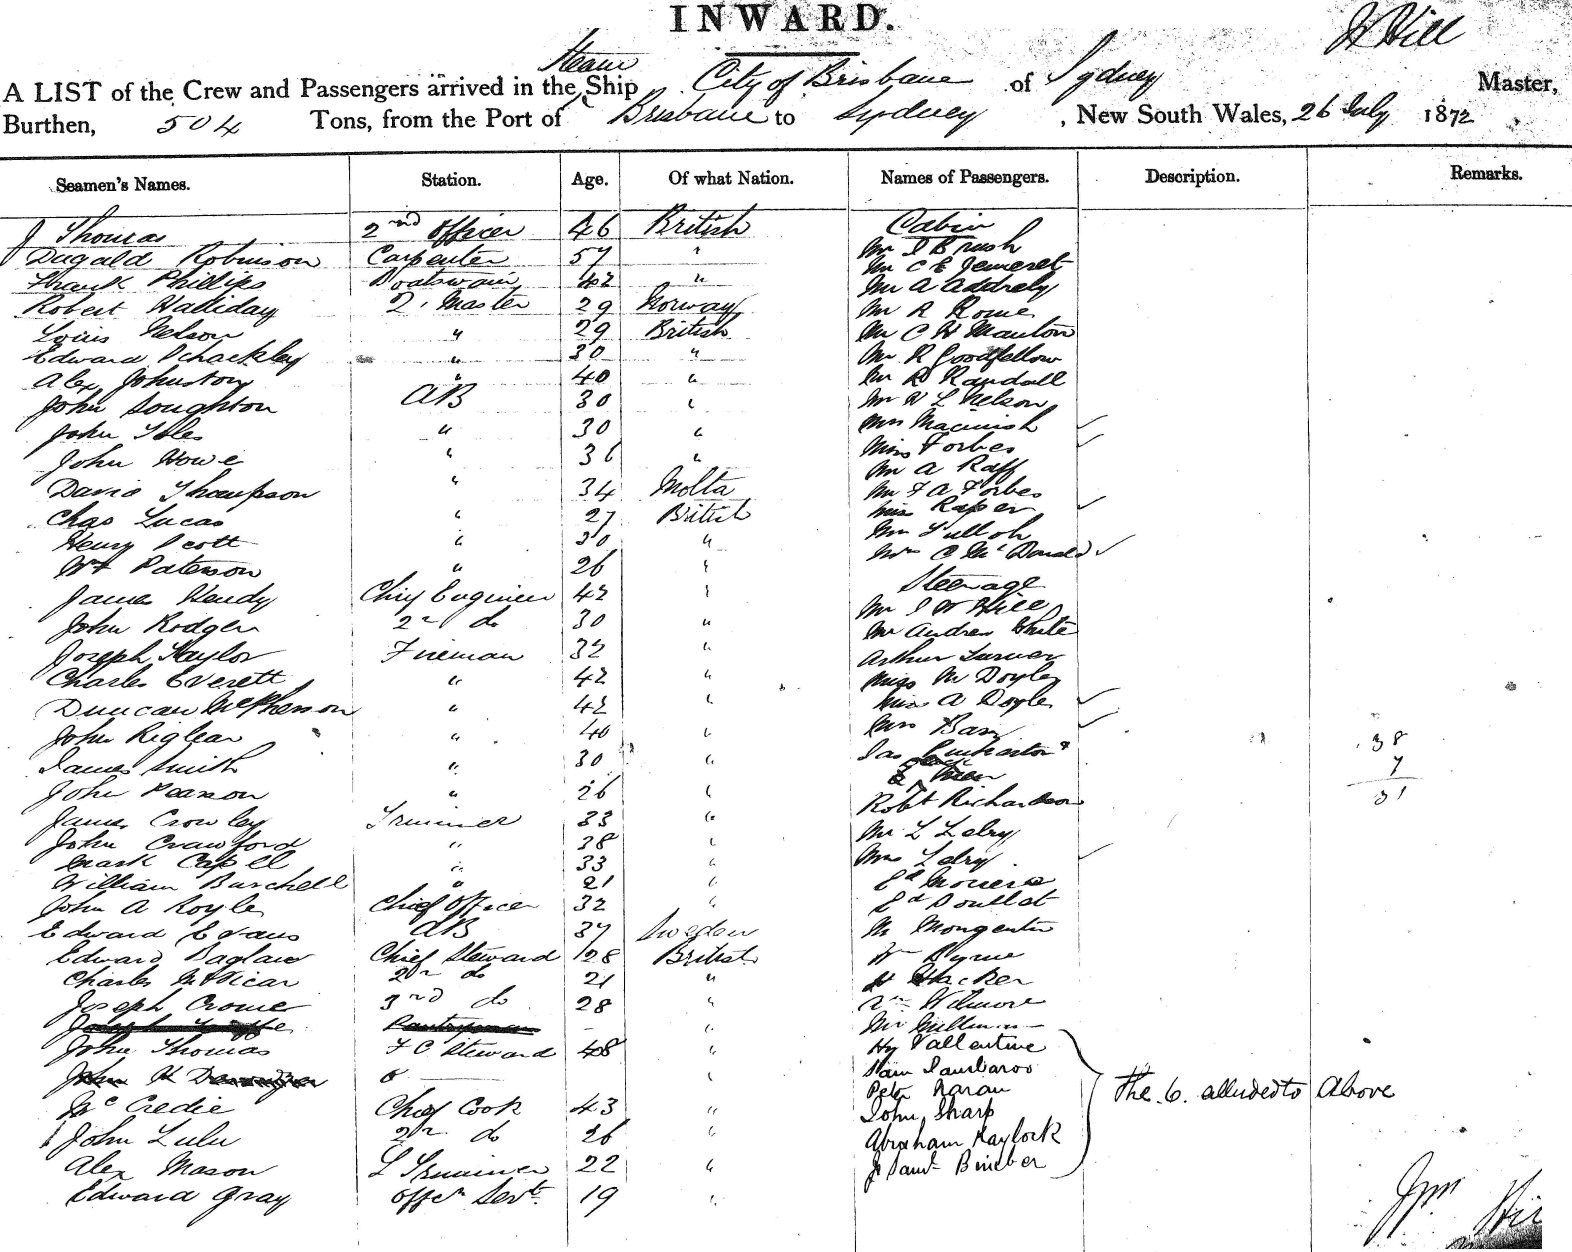 INWARD.
J Hill
Steam
A LIST of the Crew and Passengers arrived in the Ship City of Brisbane of Sydney Master,
Burthen, 504 Tons, from the Port of Brisbane to Sydney, New South Wales, 26 July 1872
Seamen's Names. Station. Age. Of what Nation. Names of Passengers. Description. Remarks.
J Thomas 2nd Officer 46 British Cabin
Dugald Robinson Carpenter 57 " Mr J Brush
Frank Phillips Boatswain 42 " Mr C E Jemeret
Robert Halliday Q. Master 29 Norway Mr A Addrely
Louis Nelson " 29 British Mr R Rome
Edward Schackley " 30 " Mr C H Manton
Alex Johnston " 40 " Mr R Goodfellow
John Soughton AB 30 " Mr R Randall
John Isles " 30 " Mr H L Nelson
John Howe " 36 " Mrs Macinish
David Thompson " 34 Molta Miss Forbes
Chas Lucas " 27 British Mr A Raff
Henry Scott " 30 " Mr F A Forbes
Wm Paterson " 26 " Miss Raper
James Hendy Chief Engineer 42 " Mr Tulloh
John Rodger 2nd do 30 " Mrs C McDonald
Joseph Naylor Fireman 32 " Steerage
Charles Everett " 42 " Mr J W Hill
Duncan McPherson " 42 " Mr Andrew White
John Riglear " 40 " Arthur Turner
James Smith " 30 " Miss M Doyle
John Pearson " 26 " Miss A Doyle
James Crowley Trimmer 33 " Mrs Bass
John Crawford " 38 " Jas
Mark Capell " 33 " Robt Richardson
William Burchell " 21 " Mr L Lelry
John A Royle Chief Officer 32 " Mrs Lelry
Edward Evans AB 37 Sweden Ed
Edward Baglaw Chief Steward 28 British Ed
Charles McVicar 2nd do 21 " M
Joseph Crome 3rd do 28 " Wm Byrne
Joseph - " H Hacker
John Thomas F C Steward 48 " Wm Wilmore
John H " Mr
McCredie Chief Cook 43 " Hy Vallentine
John Lulu 2nd do 26 " Sam Sambaroo
Alex Mason L Trimmer 22 " Peter Naran
Edward Gray Offcrs Servt. 19 " John Sharp
Abraham Kaylock
J Saml Bineber
The 6. alluded to Above
38
7
31
Jno Hil